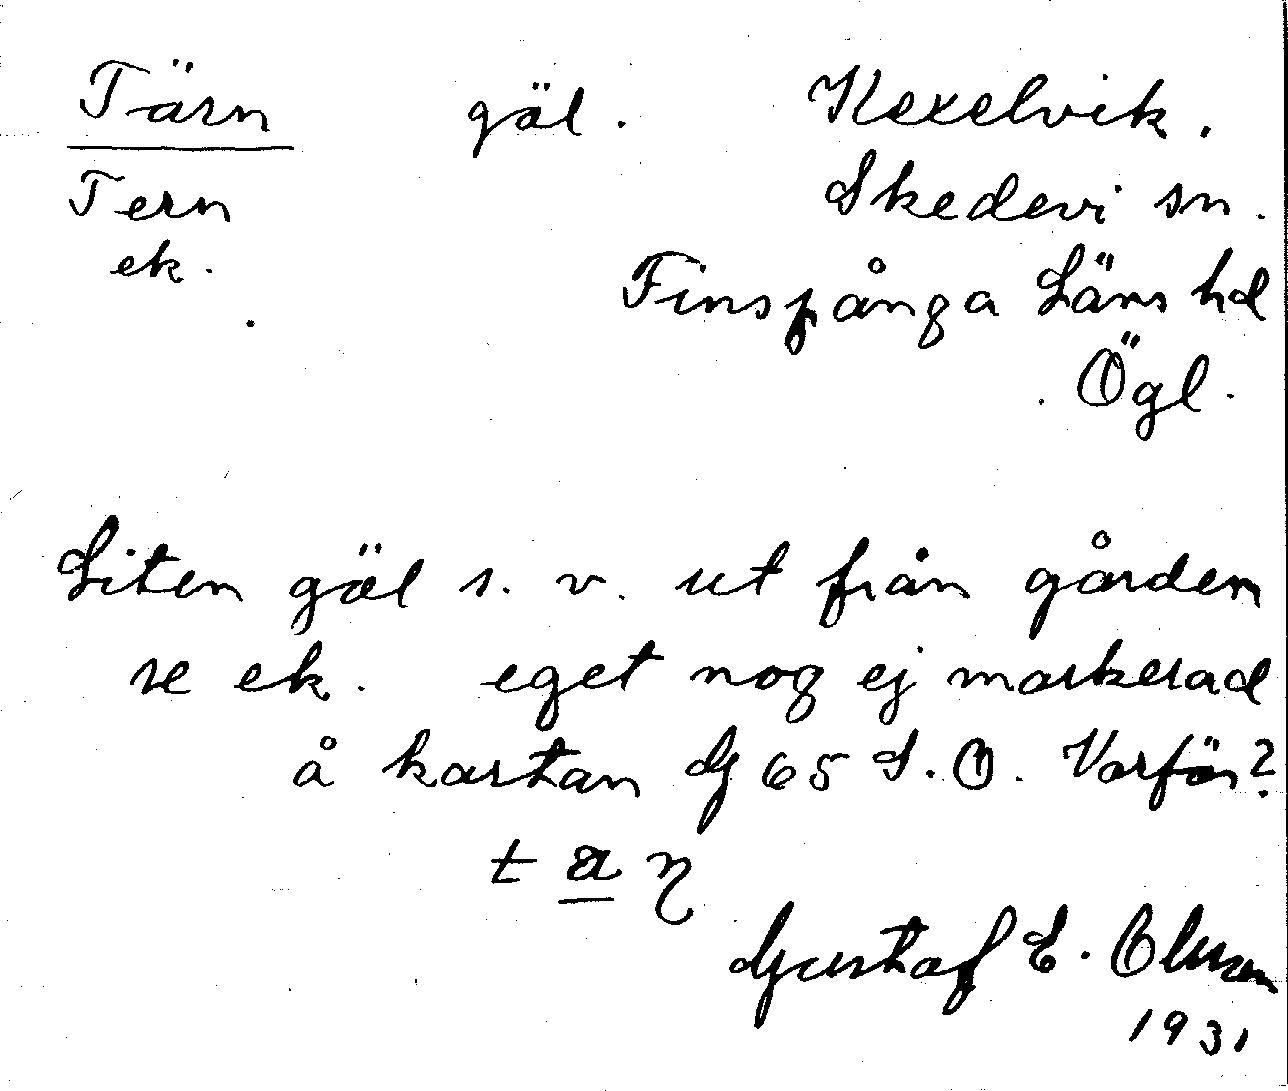 Tärn gäl. Kexelvik.
Tern Skedevi sn.
ek.
Finspånga Läns hd
Ögl.
Liten gäl s. v. ut från gården
se ek. eget nog ej markerad
å kartan G 65 S. O. Varför?
Gustaf E. Olsson
1931